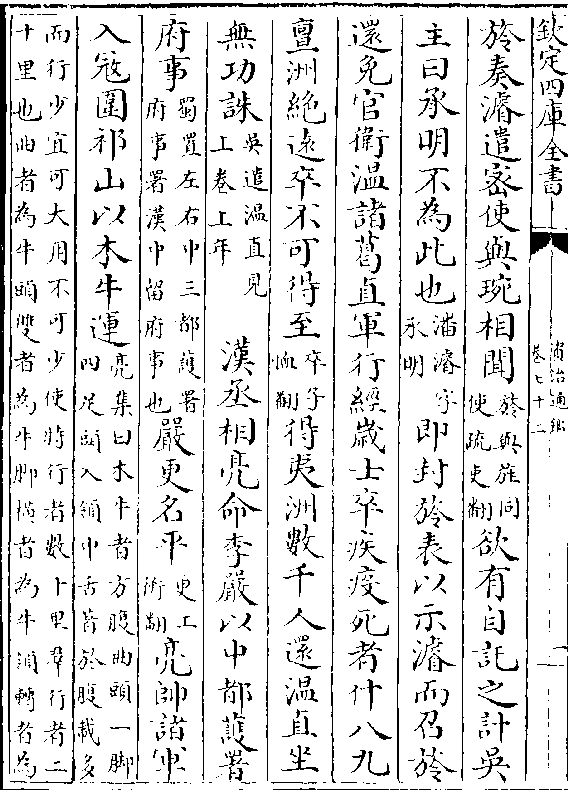 欽定四庫全書
資治通鑑
卷七十二
旍奏濬遣密使與琬相聞旍與旌同使疏吏翻欲有自託之計吳
主曰承明不為此也潘濬字承明即封旍表以示濬而召旍
還免官衛溫諸葛直軍行經歲士卒疾疫死者什八九
亶洲絕遠卒不可得至卒子恤翻得夷洲數千人還溫直坐
無功誅吳遣溫直見上卷上年 漢丞相亮命李嚴以中都護署
府事蜀置左右中三都護署府事署漢中留府事也嚴更名平更工衡翻亮帥諸軍
入寇圍祁山以木牛運亮集曰木牛者方腹曲頭一脚四足頭入領中舌著於腹載多
而行少宜可大用不可少使特行者數十里羣行者二
十里也曲者為牛頭雙者為牛脚橫者為牛領轉者為